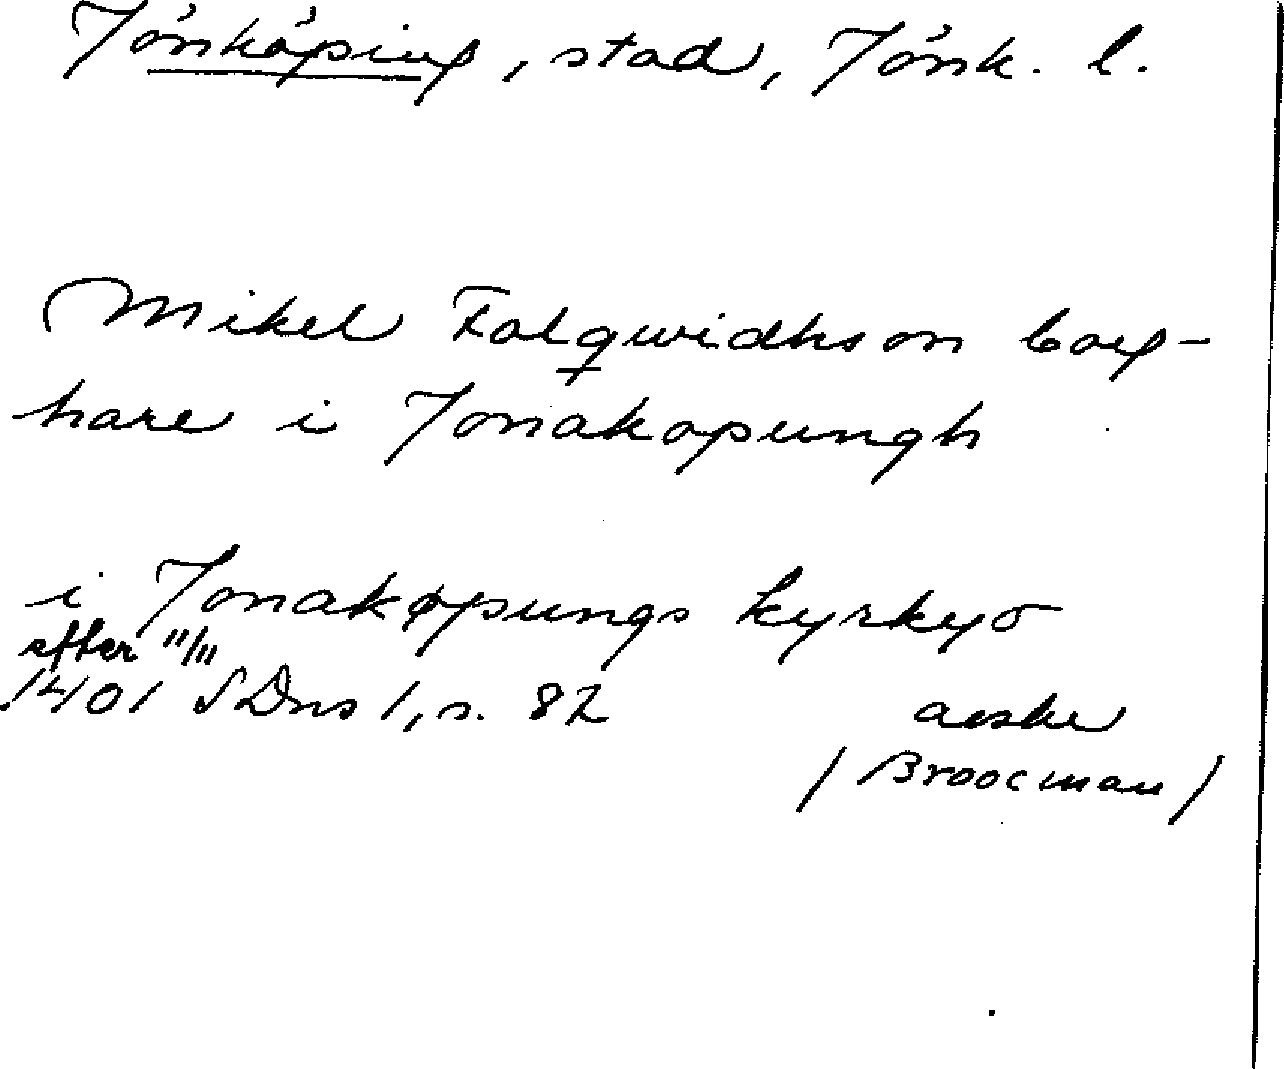 Jönköping, stad, Jönk. l.
Mikel Folqwidhson borg-
hare i Jonakopungh
i Jonakopungs kyrkyo
efter 11/11
1401 SDns 1, s. 82
avskr
/ Broocman /